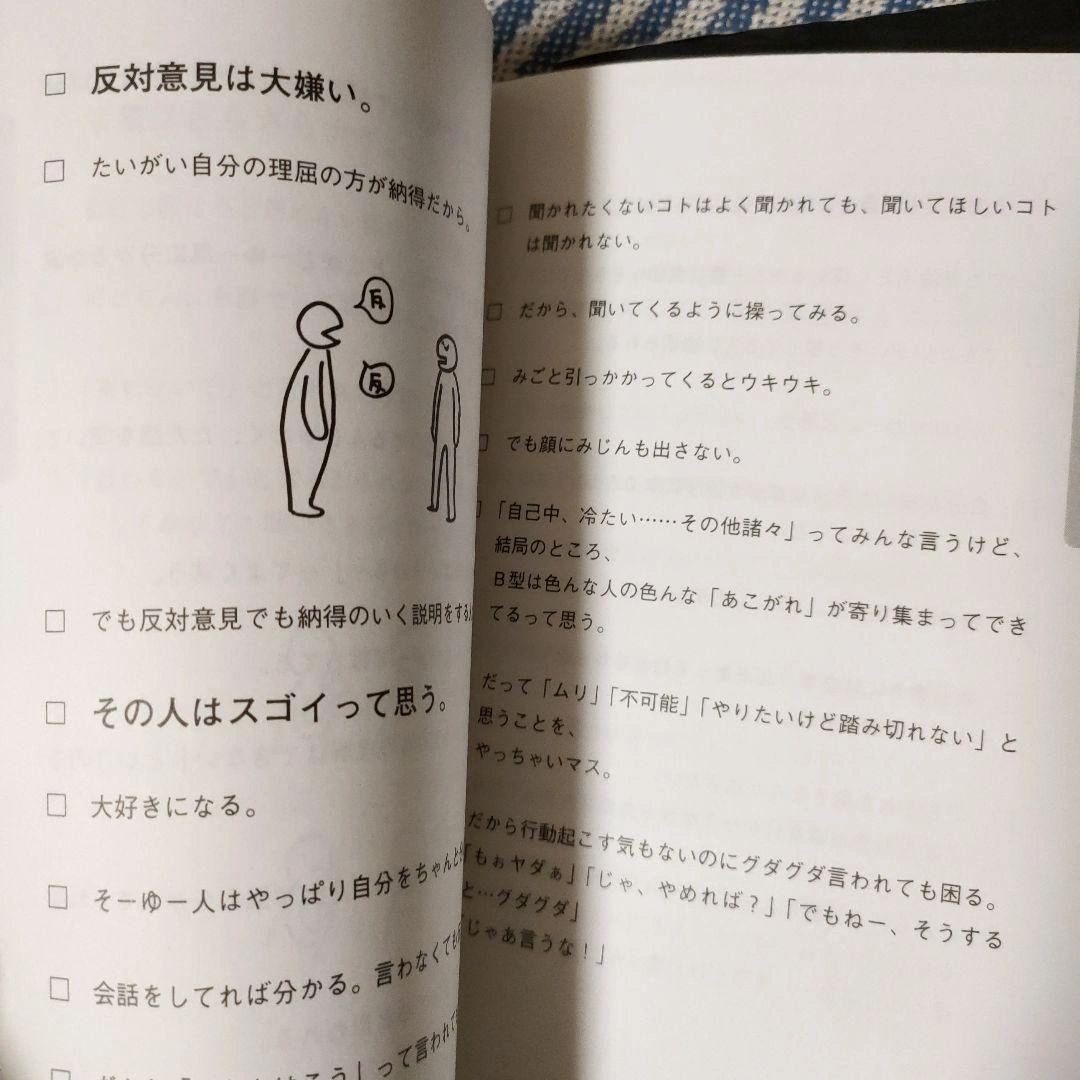 □ 反対意見は大嫌い。
□ たいがい自分の理屈の方が納得だから。
反
反
□ でも反対意見でも納得のいく説明をする
□ その人はスゴイって思う。
□ 大好きになる。
□ そーゆー人はやっぱり自分をちゃんと
□ 会話をしてれば分かる。言わなくても
って言われて
□ 聞かれたくないコトはよく聞かれても、聞いてほしいコト
は聞かれない。
□ だから、聞いてくるように操ってみる。
□ みごと引っかかってくるとウキウキ。
□ でも顔にみじんも出さない。
「自己中、冷たい……その他諸々」ってみんな言うけど、
結局のところ、
B型は色んな人の色んな「あこがれ」が寄り集まってでき
てるって思う。
だって「ムリ」「不可能」「やりたいけど踏み切れない」と
思うことを、
やっちゃいマス。
だから行動起こす気もないのにグダグダ言われても困る。
「もぉヤダぁ」「じゃ、やめれば？」「でもねー、そうする
と…グダグダ」
「じゃあ言うな！」